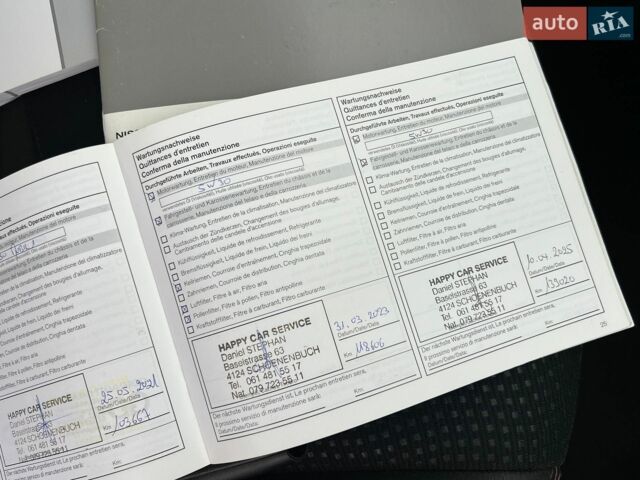 auto RIA.com
NISS
Wartungsnachweise
Quittances d'entretien
Conferma della manutenzione
Durchgeführte Arbeiten, Travaux effectués, Operazioni eseguite
Motorwartung, Entretien du moteur, Manutenzione del motore
5W30
Fahrgestell- und Karosseriewartung, Entretien du châssis et de la
carrosserie, Manutenzione del telaio e della carrozzeria
Klima-Wartung, Entretien de la climatisation, Manutenzione del climatizzatore
Austausch der Zündkerzen, Changement des bougies d'allumage,
Cambiamento delle candele d'accensione
Kühlflüssigkeit, Liquide de refroidissement, Refrigerante
Bremsflüssigkeit, Liquide de frein, Liquido dei freni
Keilriemen, Courroie d'entraînement, Cinghia trapezoidale
Zahnriemen, Courroie de distribution, Cinghia dentata
Luftfilter, Filtre à air, Filtro aria
Pollenfilter, Filtre à pollen, Filtro antipolline
Kraftstofffilter, Filtre à carburant, Filtro carburante
HAPPY CAR SERVICE
Daniel STEPHAN
Baselstrasse 63
4124 SCHOENENBUCH
Tel. 061 481 55 17
Nat. 079 723 55 11
31.03.2023
Datum/Date/Data
Km 118606
Der nächste Wartungsdienst ist, Le prochain entretien sera,
Il prossimo servizio di manutenzione sarà:
Km
Datum/Date/Data
Wartungsnachweise
Quittances d'entretien
Conferma della manutenzione
Durchgeführte Arbeiten, Travaux effectués, Operazioni eseguite
Motorwartung, Entretien du moteur, Manutenzione del motore
5W30
Fahrgestell- und Karosseriewartung, Entretien du châssis et de la
carrosserie, Manutenzione del telaio e della carrozzeria
Klima-Wartung, Entretien de la climatisation, Manutenzione del climatizzatore
Austausch der Zündkerzen, Changement des bougies d'allumage,
Cambiamento delle candele d'accensione
Kühlflüssigkeit, Liquide de refroidissement, Refrigerante
Bremsflüssigkeit, Liquide de frein, Liquido dei freni
Keilriemen, Courroie d'entraînement, Cinghia trapezoidale
Zahnriemen, Courroie de distribution, Cinghia dentata
Luftfilter, Filtre à air, Filtro aria
Pollenfilter, Filtre à pollen, Filtro antipolline
Kraftstofffilter, Filtre à carburant, Filtro carburante
HAPPY CAR SERVICE
Daniel STEPHAN
Baselstrasse 63
4124 SCHOENENBUCH
Tel. 061 481 55 17
Nat. 079 723 55 11
10.04.2025
Datum/Date/Data
Km 139020
Der nächste Wartungsdienst ist, Le prochain entretien sera,
Il prossimo servizio di manutenzione sarà:
Km
Datum/Date/Data
25
HAPPY CAR SERVICE
Daniel STEPHAN
Baselstrasse 63
4124 SCHOENENBUCH
Tel. 061 481 55 17
Nat. 079 723 55 11
25.05.2021
Datum/Date/Data
Km 103667
Der nächste Wartungsdienst ist, Le prochain entretien sera,
Il prossimo servizio di manutenzione sarà:
Km
Datum/Date/Data